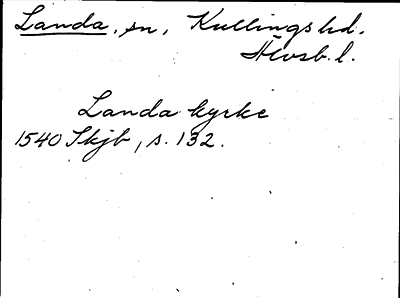 Landa, sn, Kullings hd.
Älvsb. l.
Landa kyrke
1540 Skjb, s. 132.